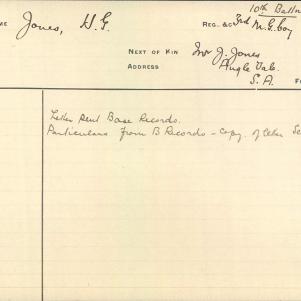 10th Battn
ME Jones, H.G. REG. &C 3rd M.G. Coy
NEXT OF KIN Mr J. Jones
ADDRESS Angle Vale
S.A. F
Letter sent Base Records.
Particulars from B Records - Copy of letter Se